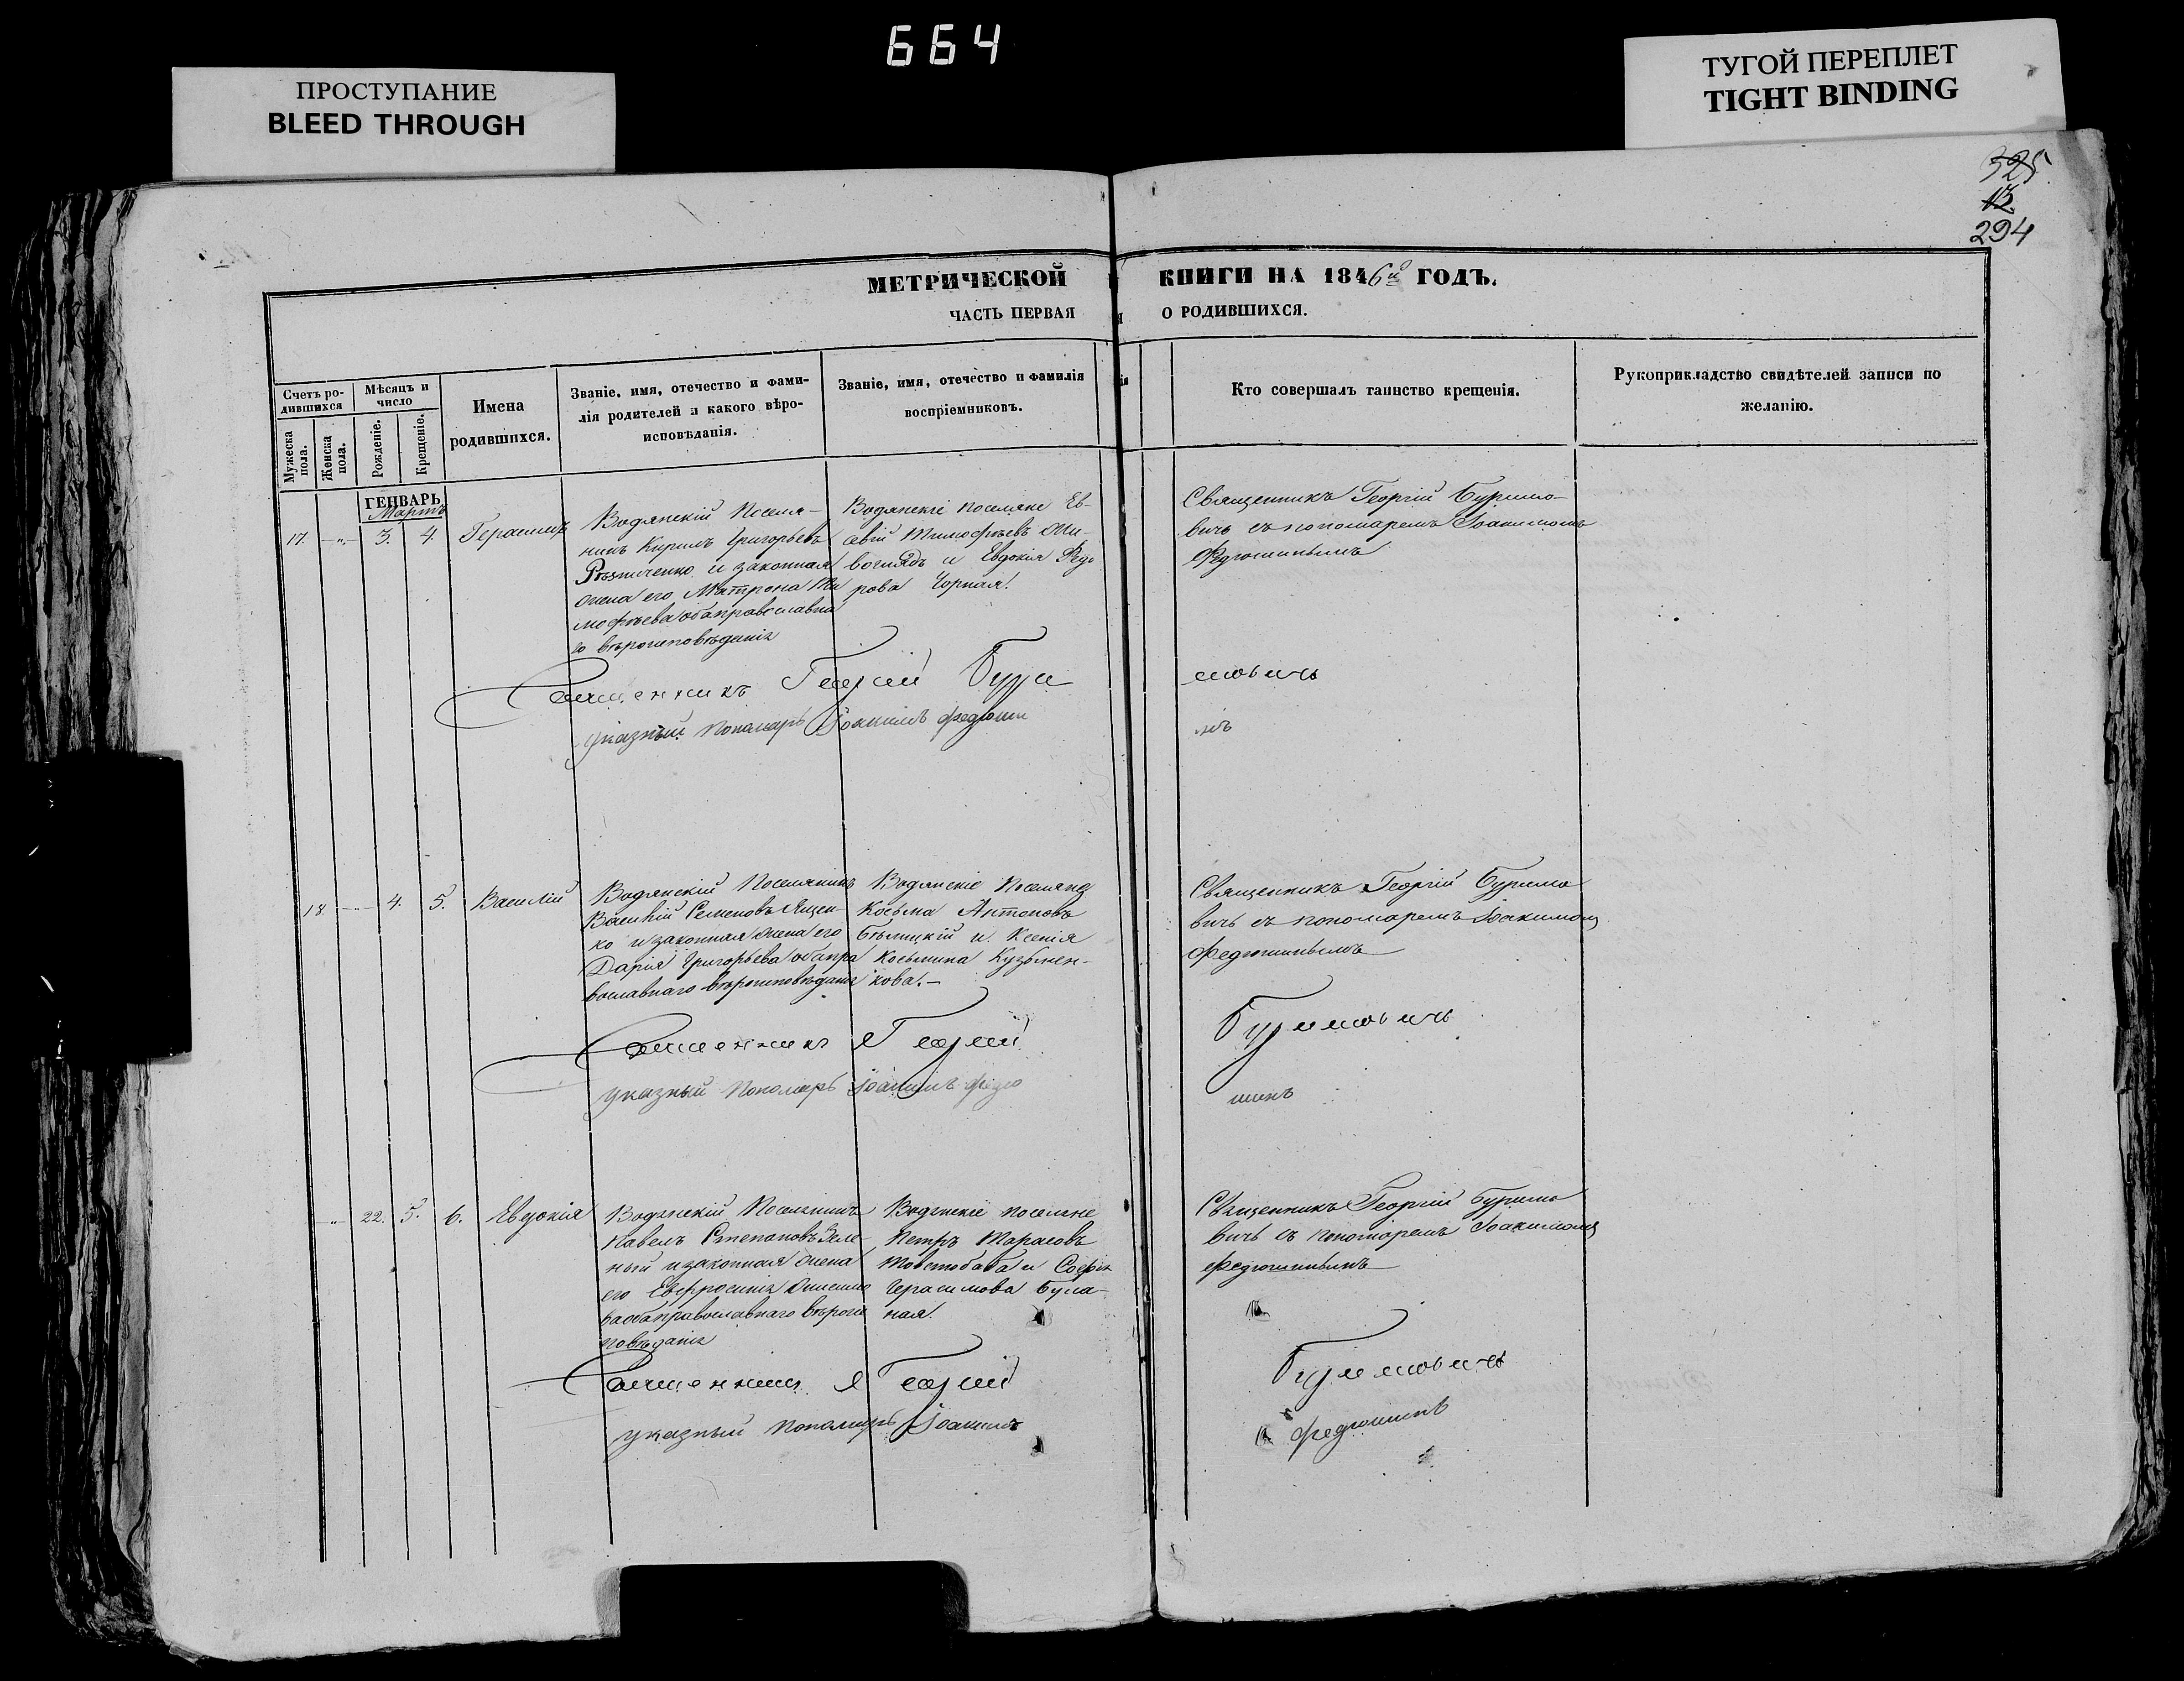 664
ПРОСТУПАНИЕ
BLEED THROUGH
ТУГОЙ ПЕРЕПЛЕТ
TIGHT BINDING
325
13.
294
МЕТРИЧЕСКОЙ КНИГИ НА 1846й ГОДЪ.
ЧАСТЬ ПЕРВАЯ О РОДИВШИХСЯ.
Счетъ ро-
дившихся
Мужеска пола.
Женска пола.
Мѣсяцъ и
число
Рожденіе.
Крещеніе.
Имена
родившихся.
Званіе, имя, отечество и фами-
лія родителей и какого вѣро-
исповѣданія.
Званіе, имя, отечество и фамилія
воспріемниковъ.
Кто совершалъ таинство крещенія.
Рукоприкладство свидѣтелей записи по
желанію.
ГЕНВАРЬ
Мартъ
17. -„- 3. 4. Герасимъ
Водянскій Поселя-
нинъ Кирилъ Григорьевъ
Рѣзниченко и законная
жена его Матрона Ти
мофѣева оба православна
го вѣроисповѣданія
Водянскіе поселяне Ев-
сѣвій Тимофѣевъ
и Евдокія Федо
рова Чорная.
Священникъ Георгій Буримо-
вичь съ пономаремъ Іоакимомъ
Федюшинымъ
Священникъ Георгій Бури мовичь
указный Пономарь Іоакимъ Федюши нъ
18. 4. 5. Василій
Водянскій Поселянинъ
Василій Семеновъ Ящен-
ко и законная жена его
Дарія Григорьева оба пра
вославнаго вѣроисповѣданія
Водянскіе Поселяне
Косьма Антоновъ
Бѣлицкій и Ксенія
Косьмина Кузьмен-
кова.-
Священникъ Георгій Буримо
вичь съ пономаремъ Іоакимомъ
Федюшинымъ
Священникъ Георгій Буримовичь
указный Пономарь Іоакимъ Федю шинъ
-„- 22. 5. 6. Евдокія
Водянскій Поселянинъ
Павелъ Степановъ Зеле-
ный и законная жена
его Евфросинія
ва оба православнаго вѣроис
повѣданія
Водянскіе поселяне
Петръ Тарасовъ
Товстобаба и Софія
Герасимова Була-
ная.
Священникъ Георгій Буримо
вичь съ пономаремъ Іоакимомъ
Федюшинымъ
Священникъ Георгій Буримовичь
указный Пономарь Іоакимъ Федюшинъ